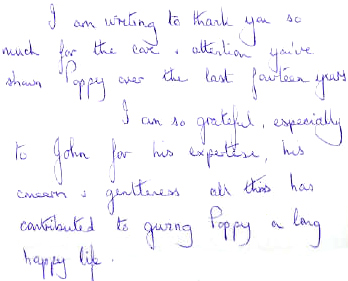 I am writing to thank you so
much for the care & attention you've
shown Poppy over the last fourteen years
I am so grateful, especially
to John for his expertise, his
concern & gentleness all this has
contributed to giving Poppy a long
happy life.